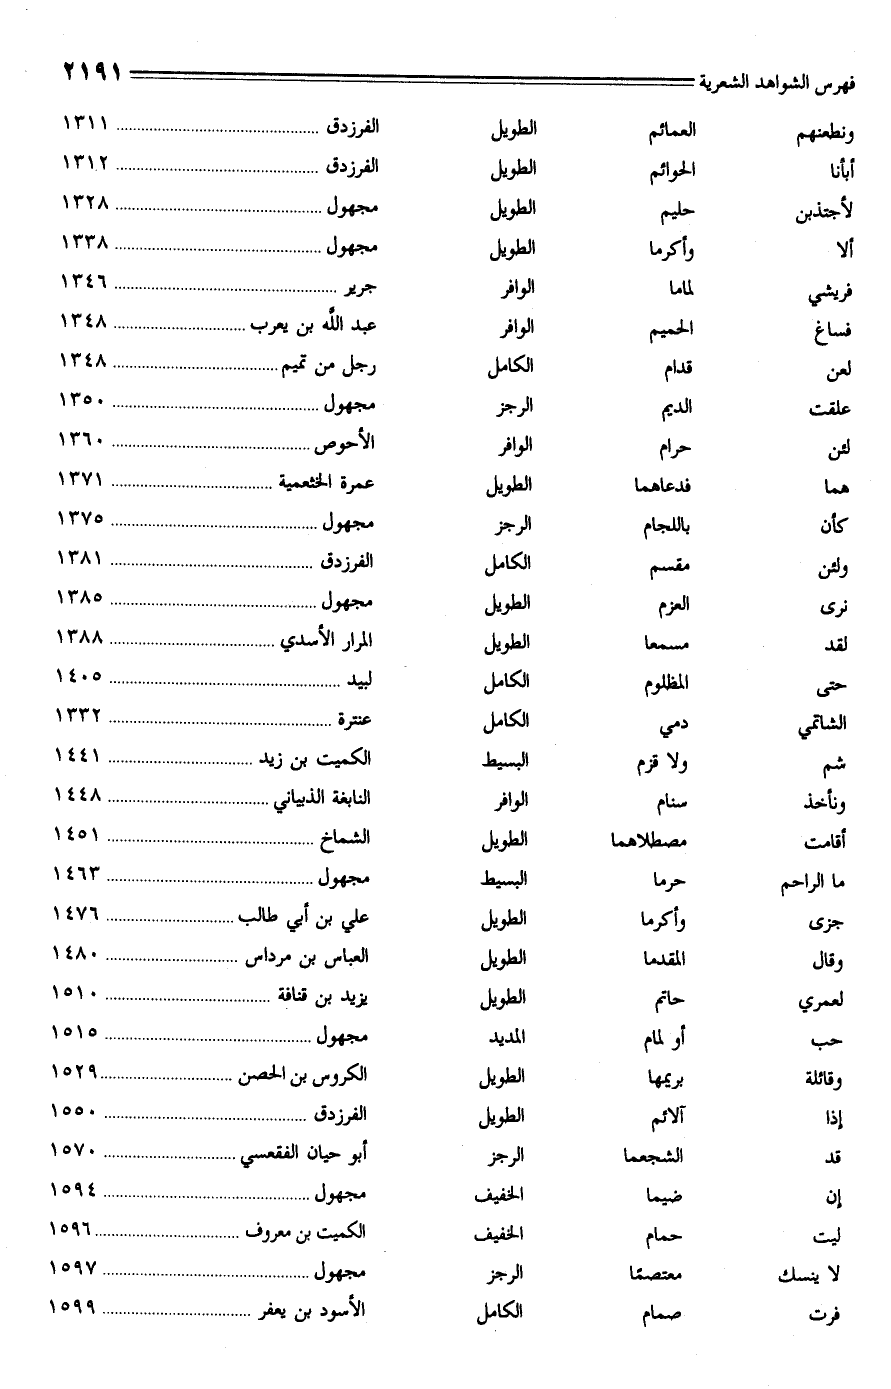 فهرس الشواهد الشعرية ٢١٩١
ونطعنهم العمائم الطويل الفرزدق ١٣١١
أبأنا الحوائم الطويل الفرزدق ١٣١٢
لأجتذبن حليم الطويل مجهول ١٣٢٨
ألا وأكرما الطويل مجهول ١٣٣٨
فريشي لماما الوافر جرير ١٣٤٦
فساغ الحميم الوافر عبد اللَّه بن يعرب ١٣٤٨
لعن قدام الكامل رجل من تميم ١٣٤٨
علقت الديم الرجز مجهول ١٣٥٠
لئن حرام الوافر الأحوص ١٣٦٠
هما فدعاهما الطويل عمرة الخثعمية ١٣٧١
كأن باللجام الرجز مجهول ١٣٧٥
ولئن مقسم الكامل الفرزدق ١٣٨١
نرى العزم الطويل مجهول ١٣٨٥
لقد مسمعا الطويل المرار الأسدي ١٣٨٨
حتى المظلوم الكامل لبيد ١٤٠٥
الشاتمي دمي الكامل عنترة ١٣٣٢
شم ولا قزم البسيط الكميت بن زيد ١٤٤١
ونأخذ سنام الوافر النابغة الذبياني ١٤٤٨
أقامت مصطلاهما الطويل الشماخ ١٤٥١
ما الراحم حرما البسيط مجهول ١٤٦٣
جزى وأكرما الطويل علي بن أبي طالب ١٤٧٦
وقال المقدما الطويل العباس بن مرداس ١٤٨٠
لعمري حاتم الطويل يزيد بن قنافة ١٥١٠
حب أو لمام المديد مجهول ١٥١٥
وقائلة بريمها الطويل الكروس بن الحصن ١٥٢٩
إذا آلائم الطويل الفرزدق ١٥٥٠
قد الشجعما الرجز أبو حيان الفقعسي ١٥٧٠
إن ضيما الخفيف مجهول ١٥٩٤
ليت حمام الخفيف الكميت بن معروف ١٥٩٦
لا ينسك معتصمًا الرجز مجهول ١٥٩٧
فرت صمام الكامل الأسود بن يعفر ١٥٩٩